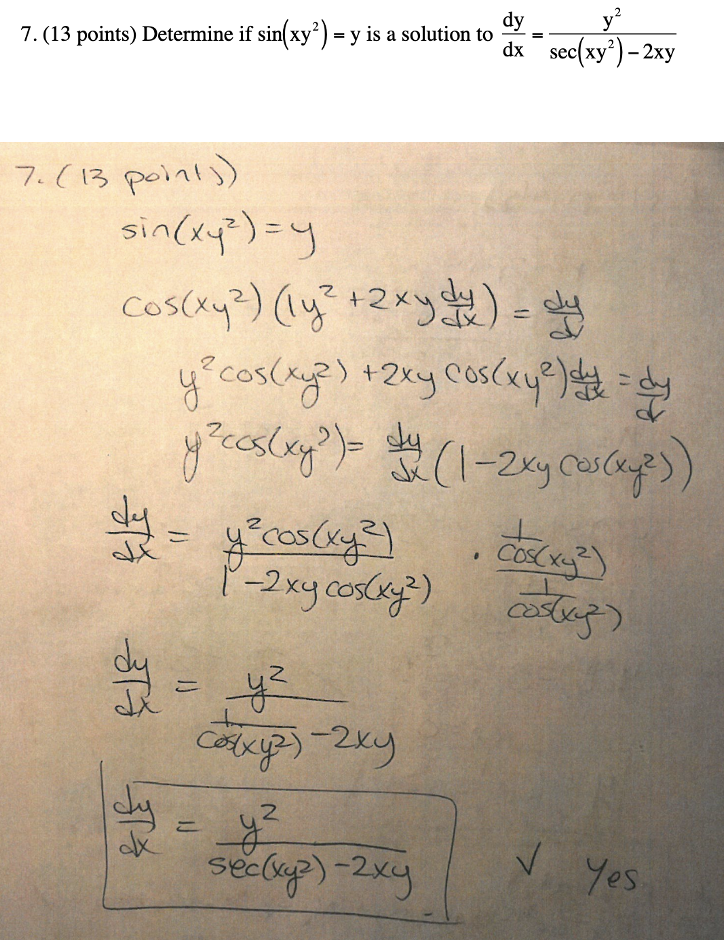 7. (13 points) Determine if sin(xy²) = y is a solution to dy/dx = y²/(sec(xy²) – 2xy)
7. (13 points)
sin(xy²) = y
cos(xy²) (1y² + 2xy dy/dx) = dy/d
y² cos(xy²) + 2xy cos(xy²) dy/dx = dy/d
y² cos(xy²) = dy/dx (1 – 2xy cos(xy²))
dy/dx = y² cos(xy²)/(1 – 2xy cos(xy²)) · (1/cos(xy²))/(1/cos(xy²))
dy/dx = y²/(1/cos(xy²) – 2xy)
dy/dx = y²/(sec(xy²) – 2xy) ✓ Yes